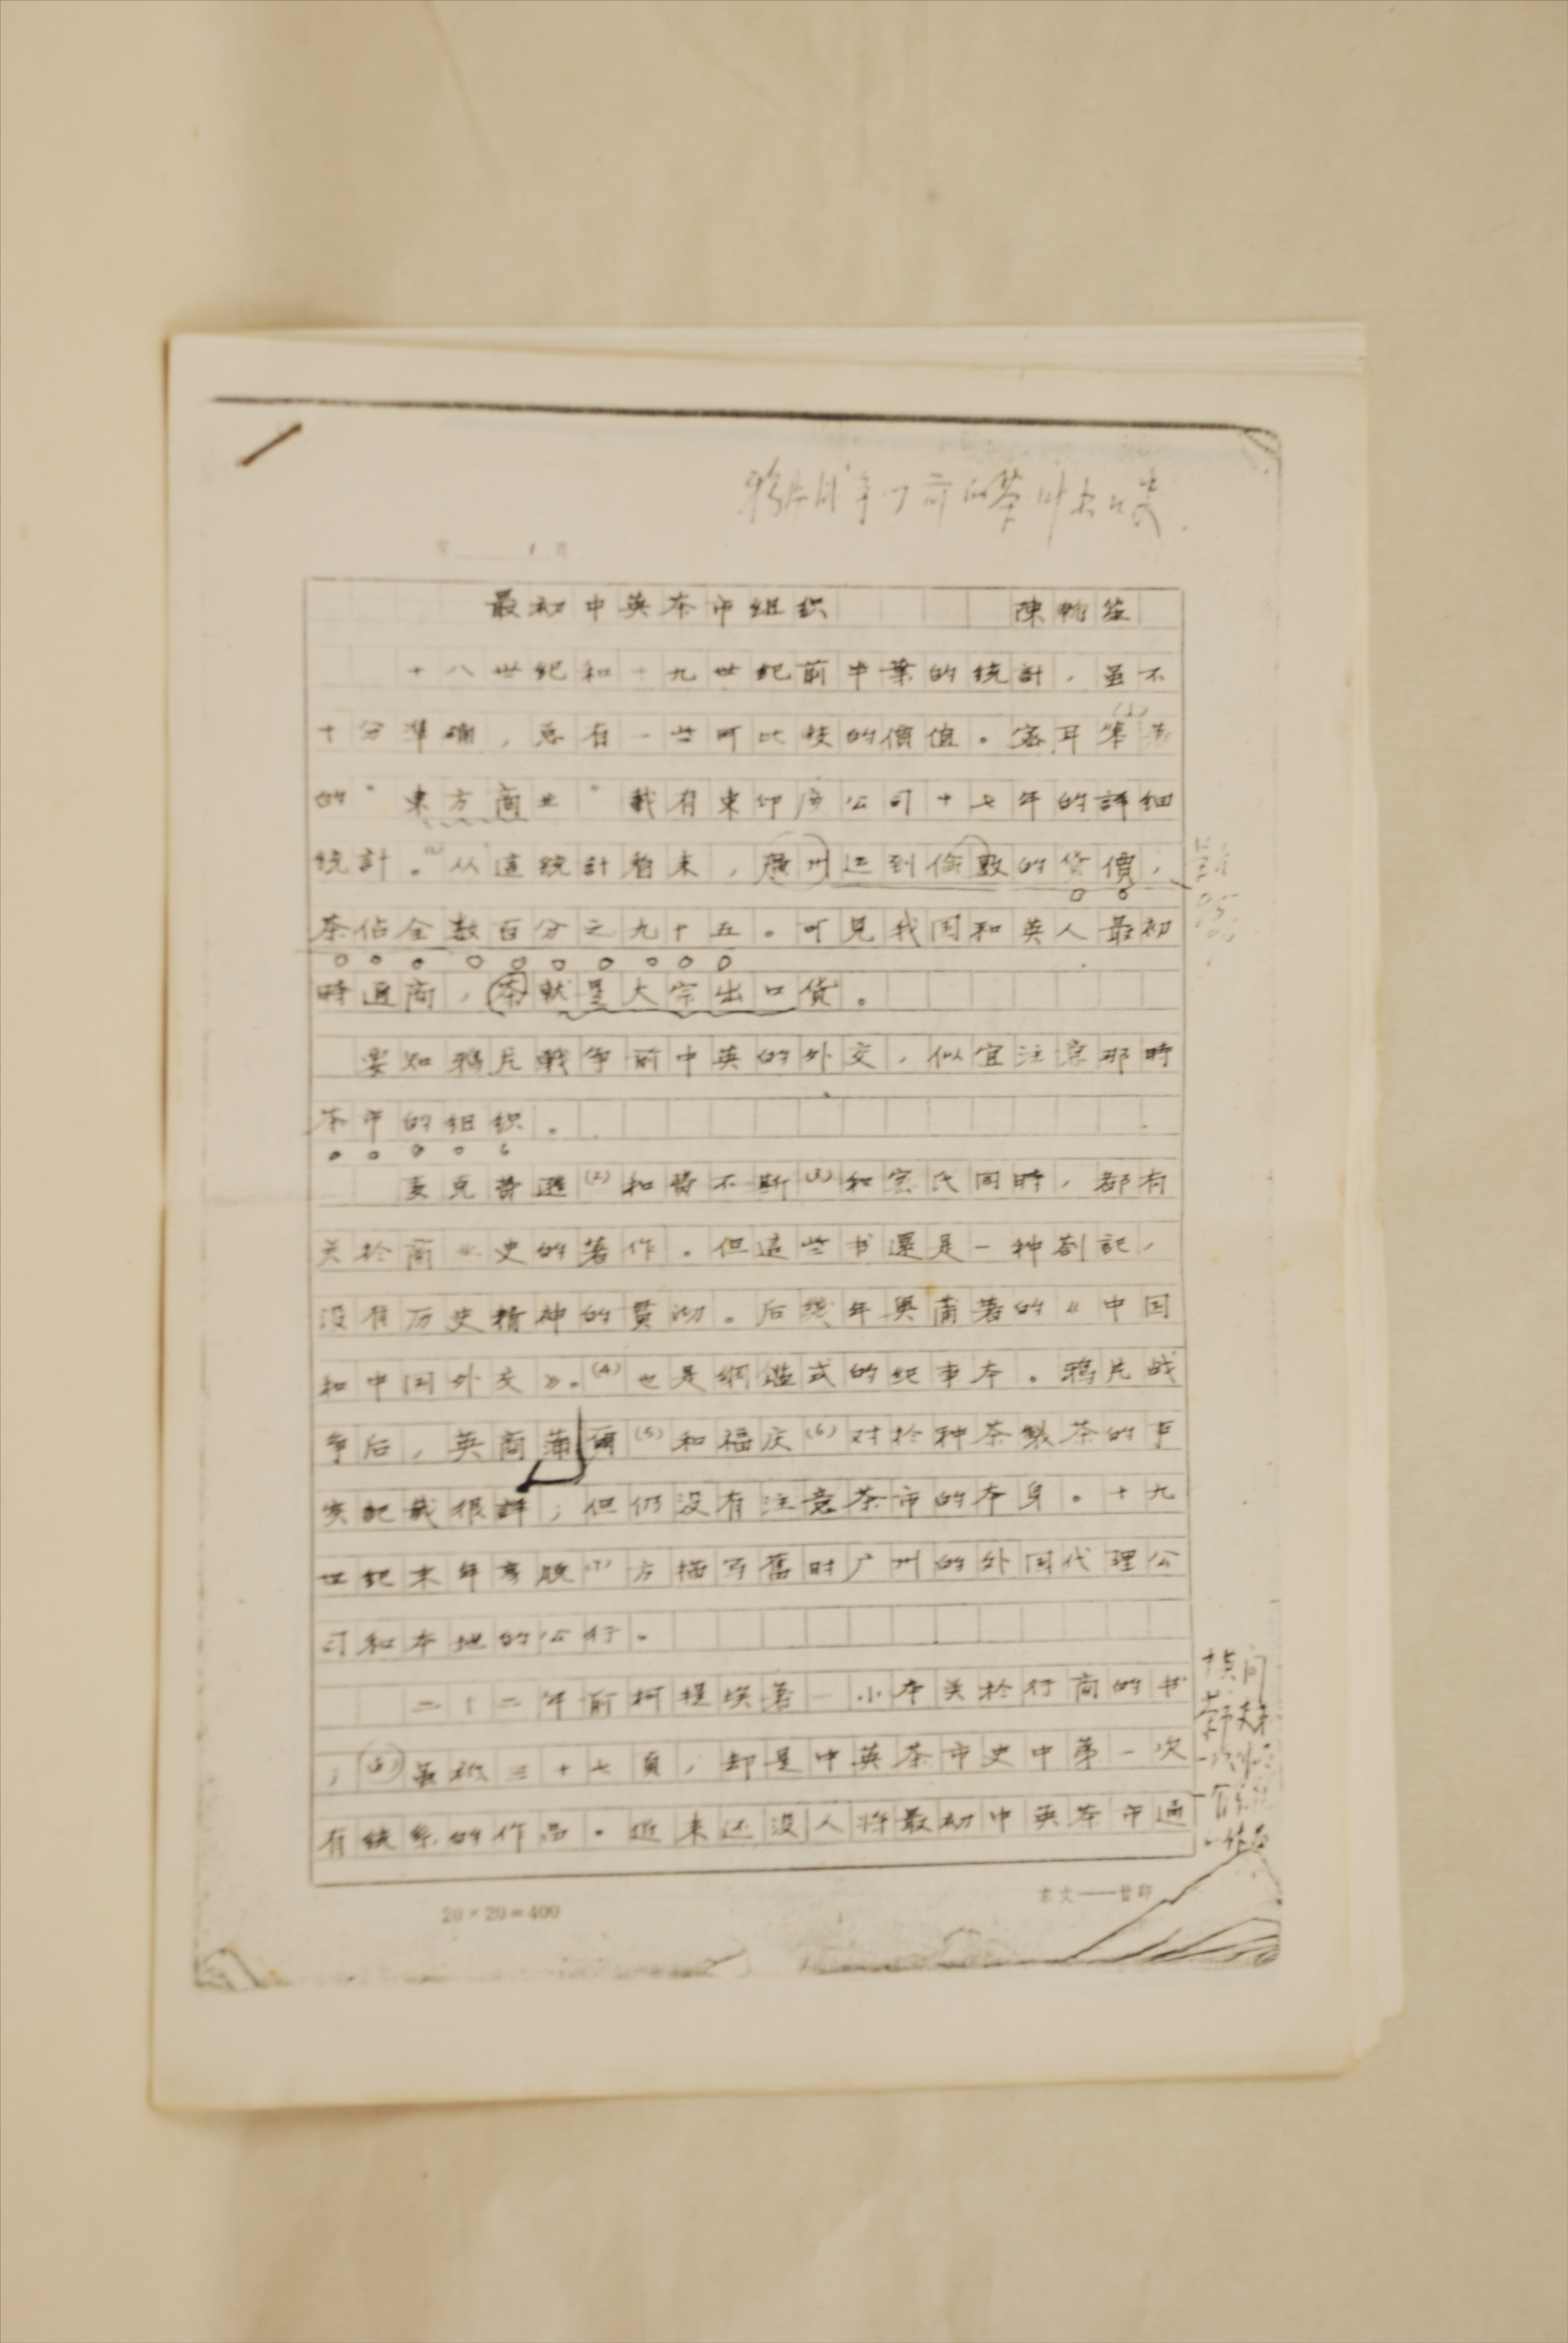 鸦片战争以前的茶叶出口史
第 1 頁
最初中英茶市組织 陳翰笙
十八世紀和十九世紀前半葉的統計，虽不
十分準確，总有一些可比較的價值。密耳(1)
的"東方商业"載有東印度公司十七年的詳細
統計。从這統計看来，廣州运到倫敦的货價，
茶佔全数百分之九十五。可見我国和英人最初
時通商，茶就是大宗出口貨。
要知鴉片戰争前中英的外交，似宜注意那時
茶市的组织。
麦克普遜(2)和菲不斯(3)和密氏同時，都有
关於商业史的著作。但這些书還是一种劄記，
没有历史精神的貫沏。后幾年奥蒲著的《中国
和中国外交》。(4)也是綱鑑式的纪事本。鸦片战
争后，英商蒲爾(5)和福庆(6)对於种茶製茶的事
实記載很詳；但仍没有注意茶市的本身。十九
世紀末年亨脱(7)方描写舊时广州的外国代理公
司和本地的公行。
二十二年前柯提埃著一小本关於行商的书
；(8)虽祇三十七頁，却是中英茶市史中第一次
有統系的作品。近来还没人将最初中英茶市通
20×20=400